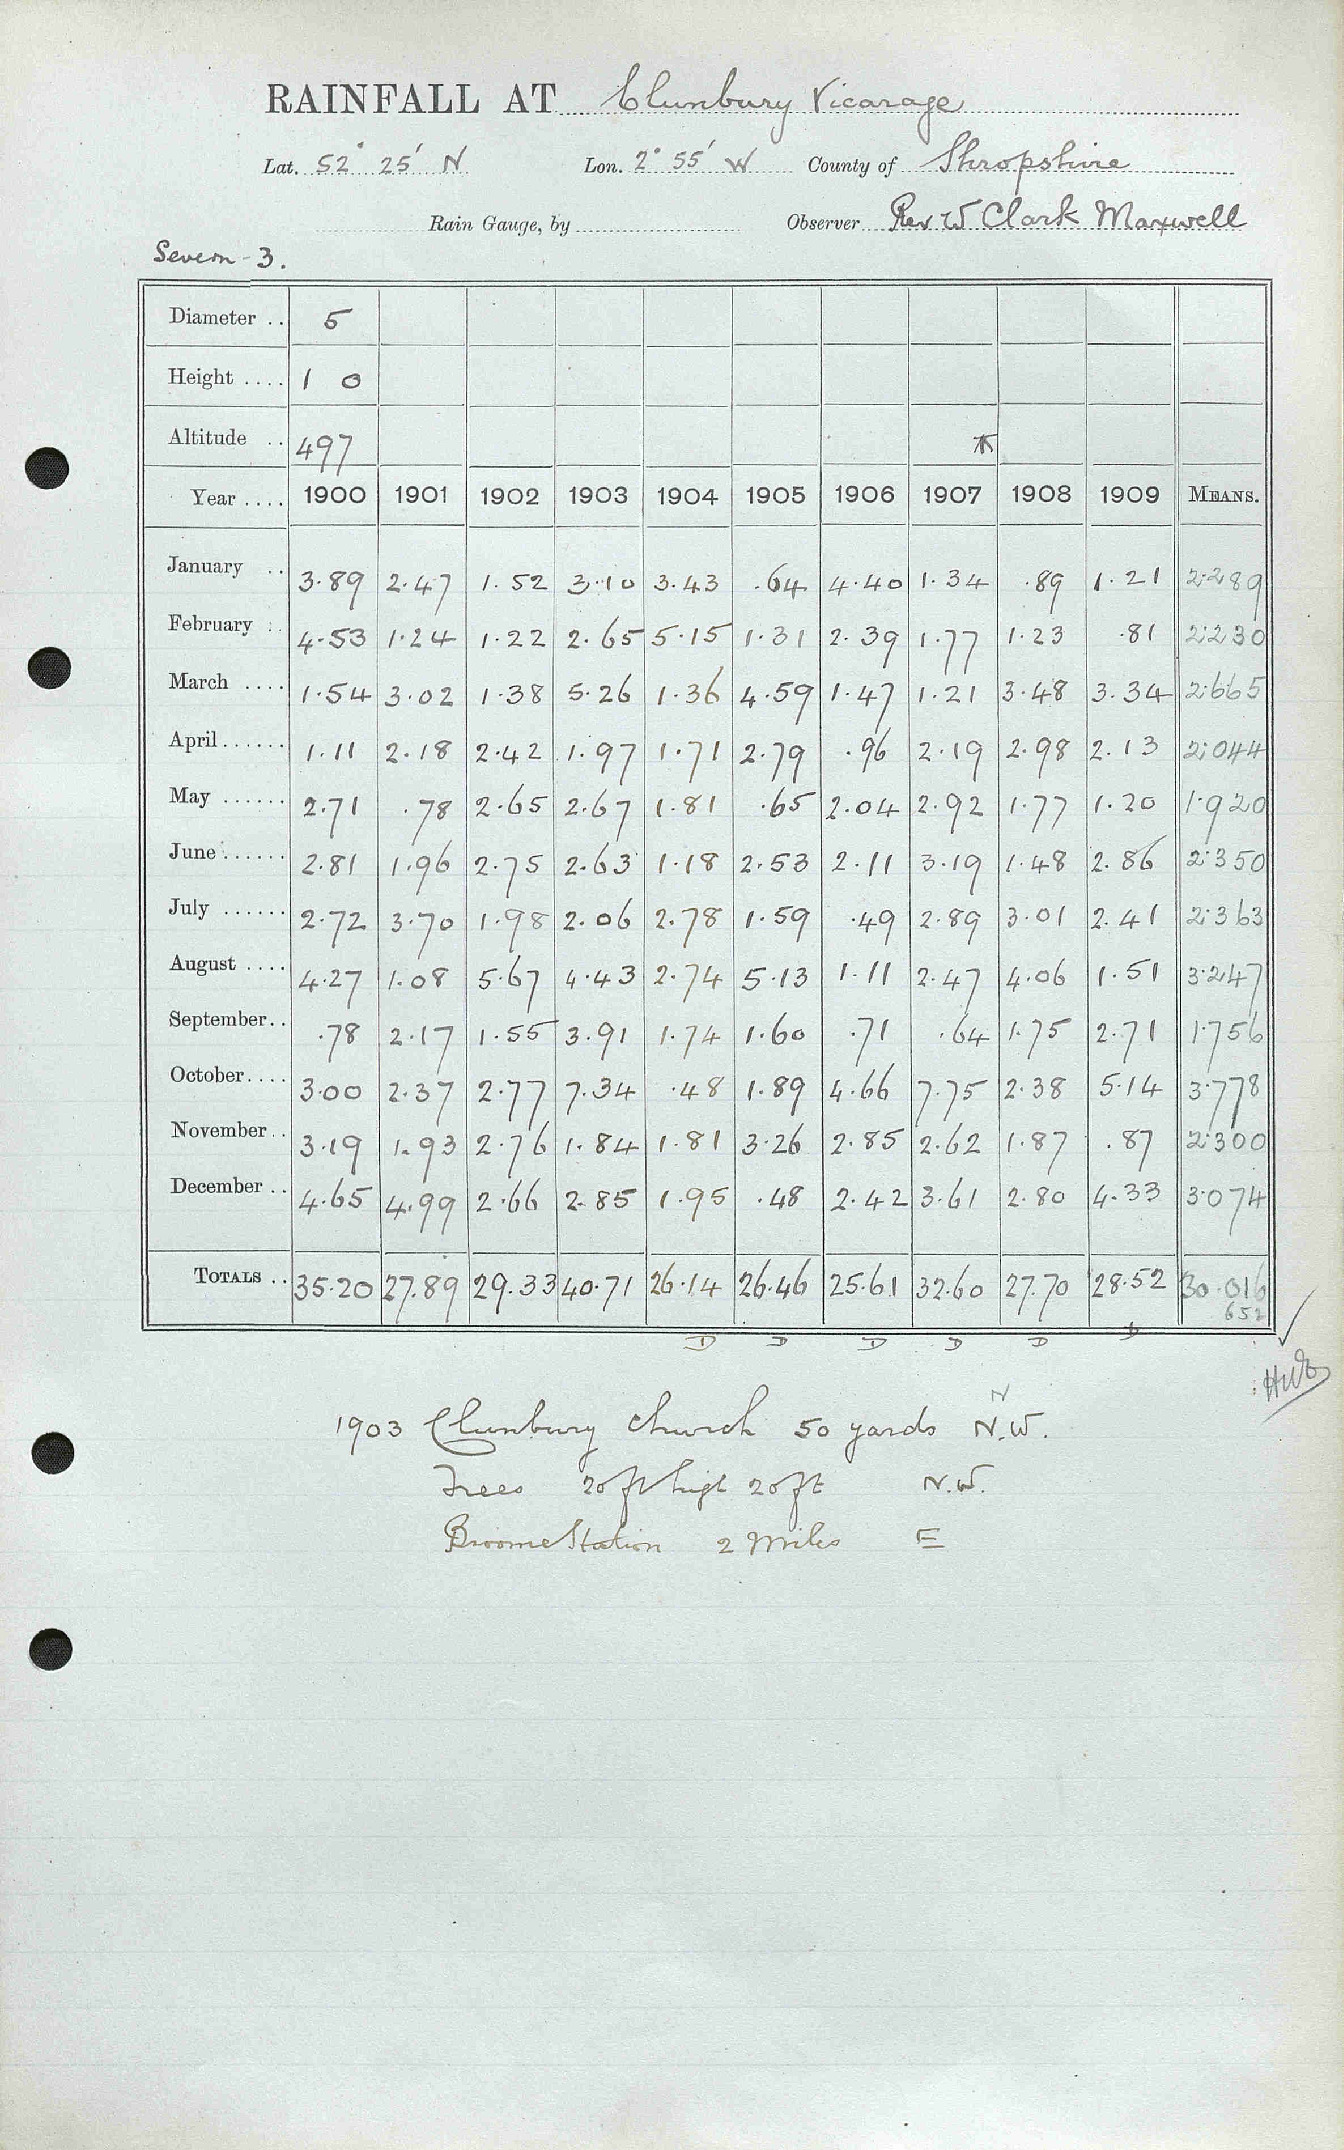 RAINFALL AT Clunbury Vicarage
Lat. 52° 25' N Lon. 2° 55' W County of Shropshire
Rain Gauge, by Observer Rev W Clark Maxwell
Severn - 3.
Diameter .. 5
Height .... 1 0
Altitude .. 497
Year .... 1900 1901 1902 1903 1904 1905 1906 1907 1908 1909 MEANS.
January .. 3.89 2.47 1.52 3.10 3.43 .64 4.40 1.34 .89 1.21 2.289
February .. 4.53 1.24 1.22 2.65 5.15 1.31 2.39 1.77 1.23 .81 2.230
March .... 1.54 3.02 1.38 5.26 1.36 4.59 1.47 1.21 3.48 3.34 2.665
April ...... 1.11 2.18 2.42 1.97 1.71 2.79 .96 2.19 2.98 2.13 2.044
May ...... 2.71 .78 2.65 2.67 1.81 .65 2.04 2.92 1.77 1.20 1.920
June ...... 2.81 1.96 2.75 2.63 1.18 2.53 2.11 3.19 1.48 2.86 2.350
July ...... 2.72 3.70 1.98 2.06 2.78 1.59 .49 2.89 3.01 2.41 2.363
August .... 4.27 1.08 5.67 4.43 2.74 5.13 1.11 2.47 4.06 1.51 3.247
September.. .78 2.17 1.55 3.91 1.74 1.60 .71 .64 1.75 2.71 1.756
October.... 3.00 2.37 2.77 7.34 .48 1.89 4.66 7.75 2.38 5.14 3.778
November.. 3.19 1.93 2.76 1.84 1.81 3.26 2.85 2.62 1.87 .87 2.300
December .. 4.65 4.99 2.66 2.85 1.95 .48 2.42 3.61 2.80 4.33 3.074
TOTALS .. 35.20 27.89 29.33 40.71 26.14 26.46 25.61 32.60 27.70 28.52 30.016
652
D D D D D D
N
1903 Clunbury Church 50 yards N.W.
Trees 20 ft high 20 ft N.W.
Broome Station 2 Miles E